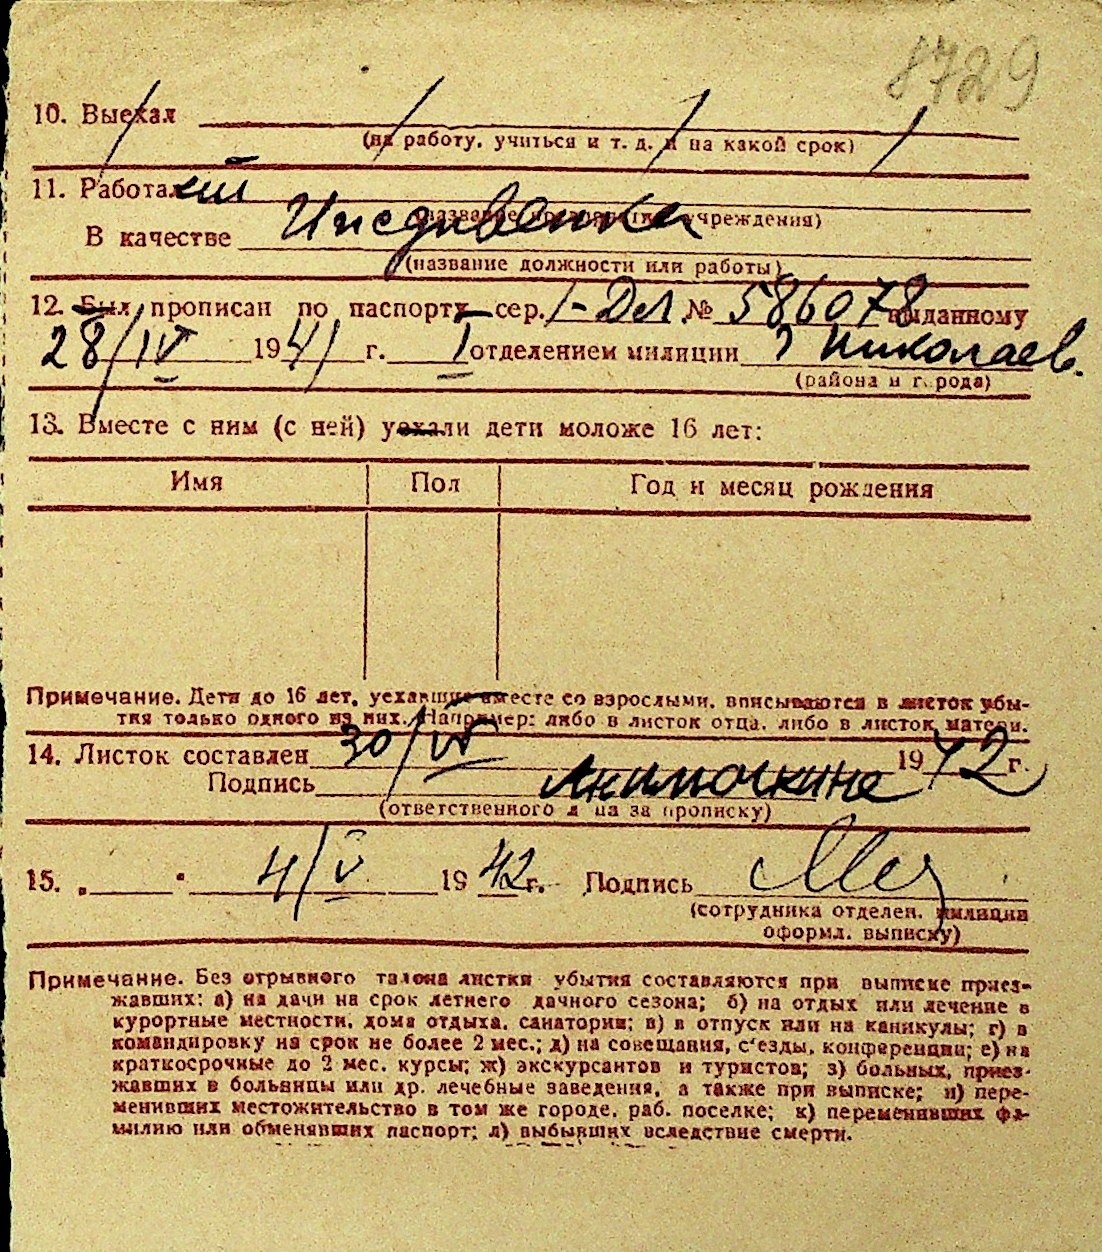 8729
10. Выехал
(на работу, учиться и т. д. и на какой срок)
11. Работал
Иждивенка
(название предприятия, учреждения)
В качестве
(название должности или работы)
12. Был прописан по паспорту сер. 586078 № выданному
28/IV 1941 г. I отделением милиции г Николаев.
(района и города)
13. Вместе с ним (с ней) уехали дети моложе 16 лет:
Имя Пол Год и месяц рождения
Примечание. Дети до 16 лет, уехавшие вместе со взрослыми, вписываются в листок убы-
тия только одного из них. Например: либо в листок отца, либо в листок матери.
14. Листок составлен 30/IV 1942 г.
Подпись
(ответственного лица за прописку)
15. „ " 4/V 1942 г. Подпись
(сотрудника отделен. милиции
оформл. выписку)
Примечание. Без отрывного талона листки убытия составляются при выписке приез-
жавших: а) на дачи на срок летнего дачного сезона; б) на отдых или лечение в
курортные местности, дома отдыха, санатории; в) в отпуск или на каникулы; г) в
командировку на срок не более 2 мес.; д) на совещания, с'езды, конференции; е) на
краткосрочные до 2 мес. курсы; ж) экскурсантов и туристов; з) больных, приез-
жавших в больницы или др. лечебные заведения, а также при выписке; и) пере-
менивших местожительство в том же городе, раб. поселке; к) переменивших фа-
милию или обменявших паспорт; л) выбывших вследствие смерти.